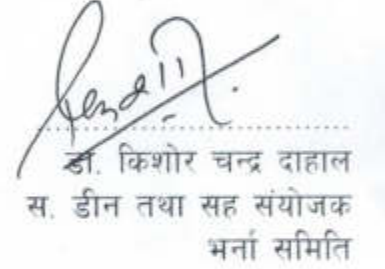 डा. किशोर चन्द्र दाहाल
स. डीन तथा सह संयोजक
भर्ना समिति